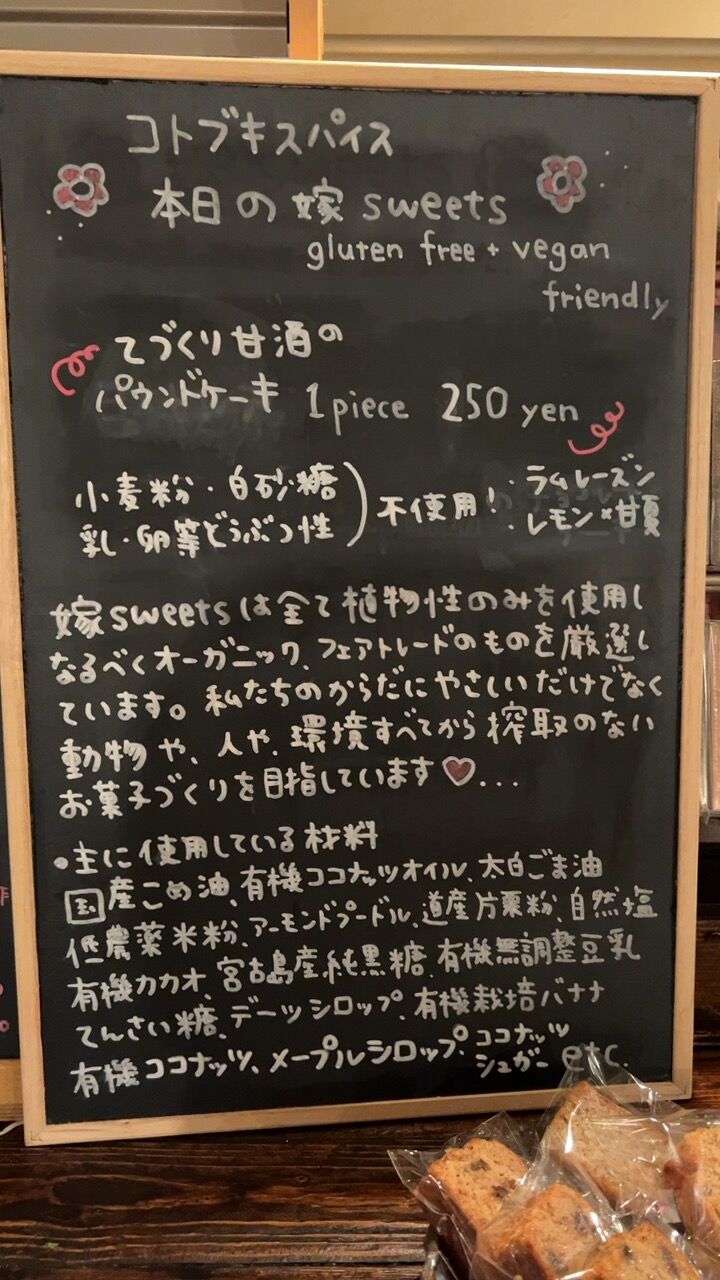 コトブキスパイス
本日の嫁sweets
gluten free + vegan
friendly
てづくり甘酒の
パウンドケーキ 1piece 250 yen
小麦粉・白砂糖
乳・卵等どうぶつ性
不使用!
・ラムレーズン
・レモン×甘夏
嫁sweetsは全て植物性のみを使用し
なるべくオーガニック、フェアトレードのものを厳選し
ています。私たちのからだにやさしいだけでなく
動物や、人や、環境すべてから搾取のない
お菓子づくりを目指しています♥...
・主に使用している材料
国産こめ油、有機ココナッツオイル、太白ごま油
低農薬米粉、アーモンドプードル、道産片栗粉、自然塩
有機カカオ、宮古島産純黒糖、有機無調整豆乳
てんさい糖、デーツシロップ、有機栽培バナナ
有機ココナッツ、メープルシロップ、ココナッツ
シュガー etc.